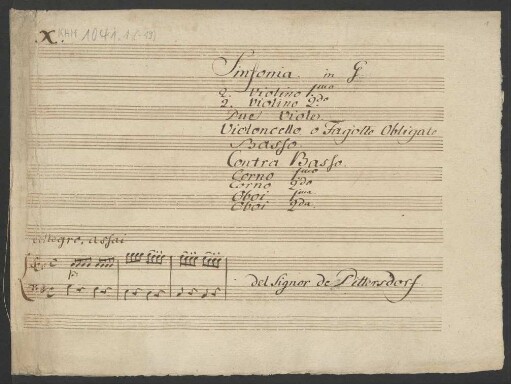 X.
Sinfonia in G
2. Violino 1mo
2. Violino 2do
Due Viole
Violoncello o Fagotto Obligato
Basso.
Contra Basso.
Corno 1mo
Corno 2do
Oboi 1mo
Oboi 2do
Allegro assai
del Signor de Dittersdorf